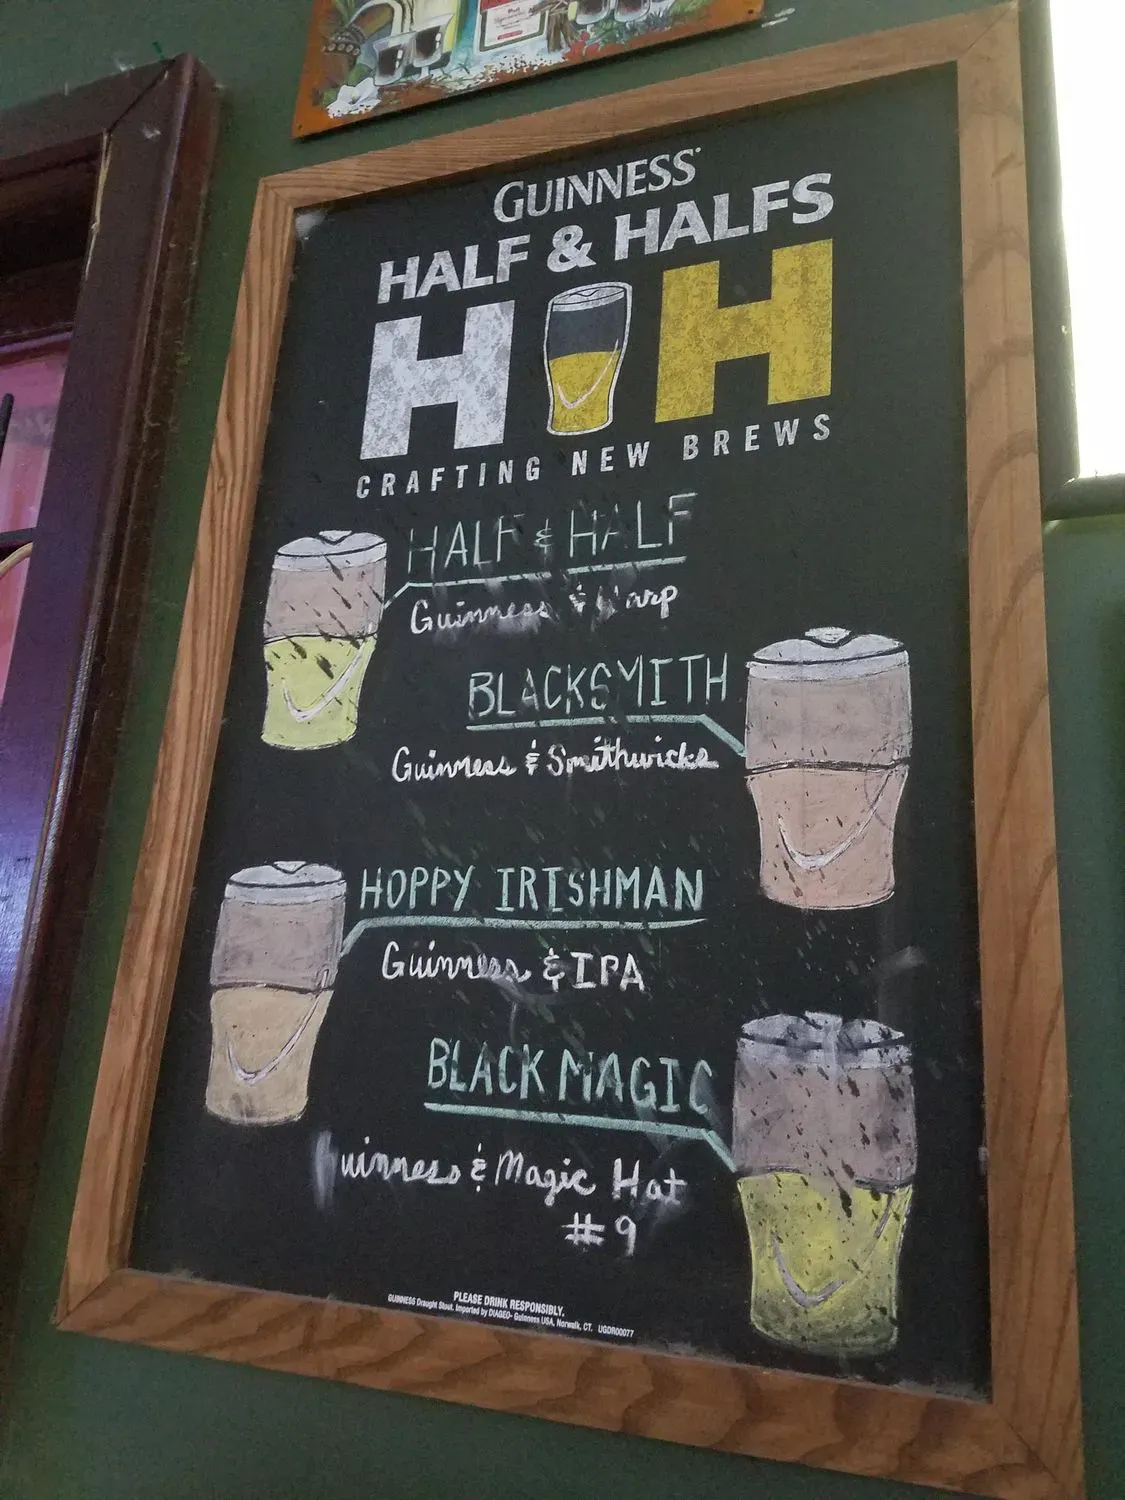 GUINNESS
HALF & HALFS
H H
CRAFTING NEW BREWS
HALF & HALF
Guinness & Harp
BLACKSMITH
Guinness & Smithwicks
HOPPY IRISHMAN
Guinness & IPA
BLACK MAGIC
Guinness & Magic Hat
#9
PLEASE DRINK RESPONSIBLY.
GUINNESS Draught Stout. Imported by DIAGEO- Guinness USA, Norwalk, CT. UGDR00077